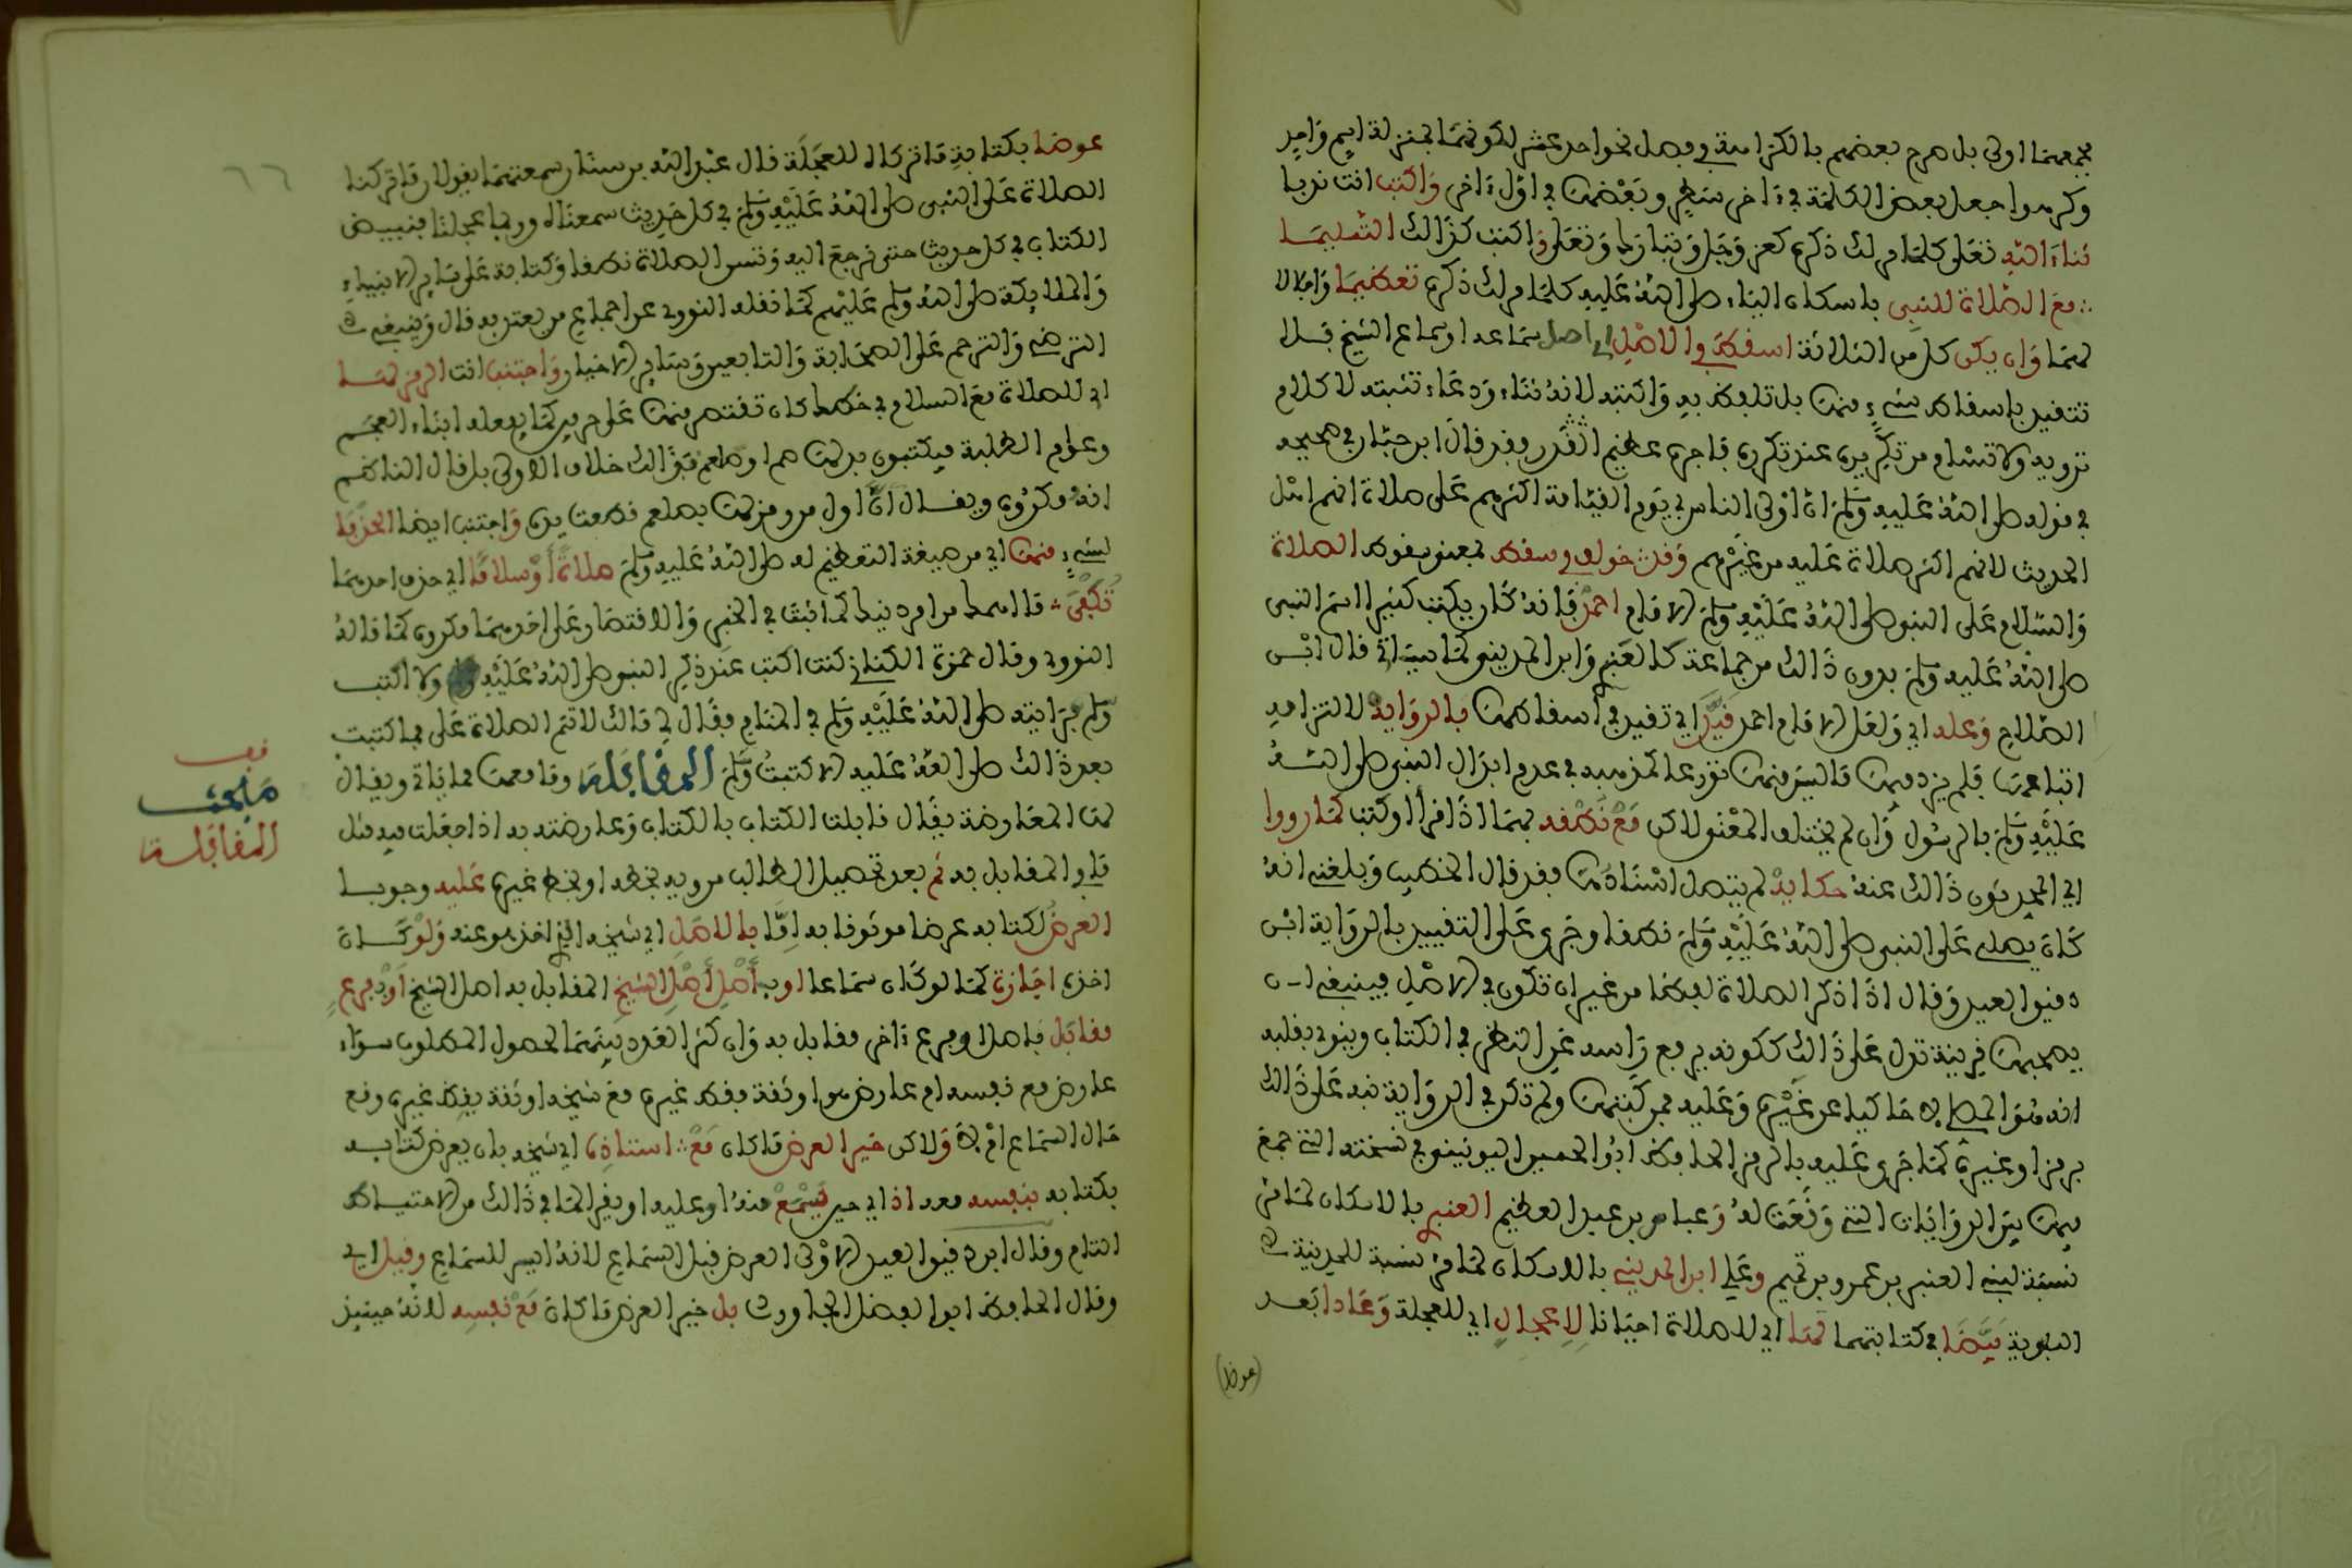 فجمعهما اولى بل صرح بعضهم بالكراهة في فصل نحو احد عشر لكونهما بمنزلة اسم واحد
وكرهوا جعل بعض الكلمة في ءاخر سطر وبعضها في اول ءاخر واكتب انت ندبا
ثناء الله تعلى كلما مر لك ذكره كعز وجل وتبارك وتعلى واكتب كذالك التسليما
مع الصلاة للنبي باسكان الياء صلى الله عليه كلما مر لك ذكره تعظيما واجلالا
لهما وان يكن كل من الثلاثة اسقط في الاصل اي اصل سماعه او سماع الشيخ فلا
تتقيد باسقاط شيء منها بل تلفظ به واكتبه لانه ثناء ودعاء تثبته لا كلام
ترويه ولا تسئم من تكريره عند تكرره فاجره عظيم القدر فقد قال ابن حبان في صحيحه
في قوله صلى الله عليه وسلم ان اولى الناس بي يوم القيامة اكثرهم على صلاة انهم اهل
الحديث لانهم اكثر صلاة عليه من غيرهم وقد خولف في سقط بمعنى سقوط الصلاة
والسلام على النبي صلى الله عليه وسلم الامام احمد فانه كان يكتب كثيرا اسم النبي
صلى الله عليه وسلم بدون ذالك من جماعة كالعنبري وابن المديني كما سياتي قال ابن
الصلاح وعله اي ولعل الامام احمد قيد اي تقيد في اسقاطها بالرواية لالتزامه
اتباعها فلم يزد فيها ما ليس منها تورعا كمذهبه في عدم ابدال النبي صلى الله
عليه وسلم بالرسول وان لم يختلف المعنى لاكن مع نطقه بهما اذا قرا او كتب كما رووا
اي المحدثون ذالك عنه حكاية لم يتصل اسنادها فقد قال الخطيب وبلغني انه
كان يصلي على النبي صلى الله عليه وسلم نطقا وجرى على التقييد بالرواية ابن
دقيق العيد وقال اذا ذكر الصلاة لفظا من غير ان تكون في الاصل فينبغي ان
يصحبها قرينة تدل على ذالك ككونه يرفع راسه عن النظر في الكتاب وينوي بقلبه
انه هو المصلي لا حاكيا عن غيره وعليه فمن كتبها ولم تكن في الرواية نبه على ذالك
برمز او غيره كما جرى عليه بالرمز الحافظ ابو الحسين اليونيني في نسخته التي جمع
فيها بين الروايات التي وقعت له وعباس بن عبد العظيم العنبري بالاسكان لما مر
نسبة لبني العنبر بن عمرو بن تميم وعلي ابن المديني بالاسكان لما مر نسبة للمدينة
النبوية بيضا في كتابتهما لها اي للصلاة احيانا لاعجال اي للعجلة وعادا بعد
(عوضا)
٦٦
عوضا بكتابة ما تركاه للعجلة قال عبد الله بن سنان سمعتهما يقولان ما تركنا
الصلاة على النبي صلى الله عليه وسلم في كل حديث سمعناه وربما عجلنا فنبيض
الكتاب في كل حديث حتى نرجع اليه وتسن الصلاة نطقا وكتابة على ساير الانبياء
والملايكة صلى الله وسلم عليهم كما نقله النووي عن اجماع من يعتد به قال وينبغي
الترضي والترحم على الصحابة والتابعين وساير الاخيار واجتنب انت الرمز لها
اي للصلاة مع السلام في خطك كان تقتصر منها على حرفين كما يفعله ابناء العجم
وعوام الطلبة فيكتبون بدلها صم او صلعم فذالك خلاف الاولى بل قال الناظم
انه مكروه ويقال ان اول من رمز لها بصلعم قطعت يده واجتنب ايضا الحذفا
لشيء منها اي من صيغة التعظيم له صلى الله عليه وسلم صلاة او سلاما اي حذف احدهما
تكفى ما اهمك من امر دينك كما ثبت في الخبر والاقتصار على احدهما مكروه كما قاله
النووي وقال حمزة الكناني كنت اكتب عند ذكر النبي صلى الله عليه ولا اكتب
وسلم فرايته صلى الله عليه وسلم في المنام فقال لي مالك لا تتم الصلاة علي فما كتبت
بعد ذالك صلى الله عليه الا كتبت وسلم المقابلة وما معها مما ياتي ويقال
لها المعارضة يقال قابلت الكتاب بالكتاب وعارضته به اذا جعلت فيه مثل
ما في المقابل به ثم بعد تحصيل الطالب مرويه بخطه او بخط غيره عليه وجوبا
العرض لكتابه عرضا موثوقا به اما بالاصل اي شيخه الذي اخذ هو عنه ولو كان
اخذه اجازة كما لو كان سماعا او باصل اصل الشيخ المقابل به اصل الشيخ او بفرع
مقابل باصل او فرع ءاخر مقابل به وان كثر العدد بينهما لحصول المطلوب سواء
عارض مع نفسه ام عارض هو او ثقة يقظ غيره مع شيخه او ثقة يقظ غيره وقع
حال السماع ام لا ولاكن خير العرض ما كان مع استاذه اي شيخه بان يعرض كتابه
بكتابه بنفسه معه اذا اي حين يسمع منه او عليه او يقرا لما في ذالك من الاحتياط
التام وقال ابن دقيق العيد الاولى العرض قبل السماع لانه ايسر للسماع وقيل اي
وقال الحافظ ابو الفضل الجارودي بل خير العرض ما كان مع نفسه لانه حينيذ
قف
مبحث
المقابلة